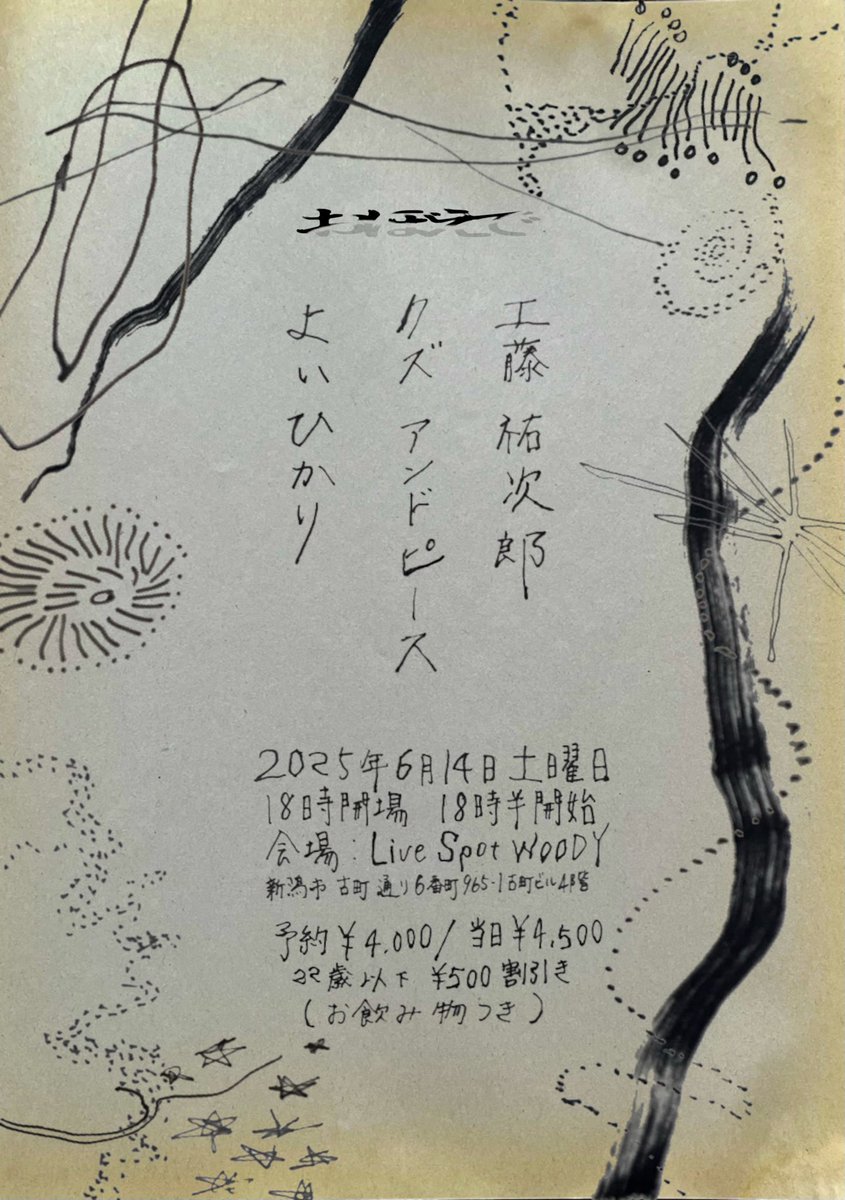 工藤 祐次郎
クズ アンドピース
よいひかり
2025年6月14日 土曜日
18時開場 18時半開始
会場:Live Spot WOODY
新潟市 古町通り6番町965-1古町ビル4階
予約¥4,000/当日¥4,500
22歳以下 ¥500割引き
(お飲み物つき)